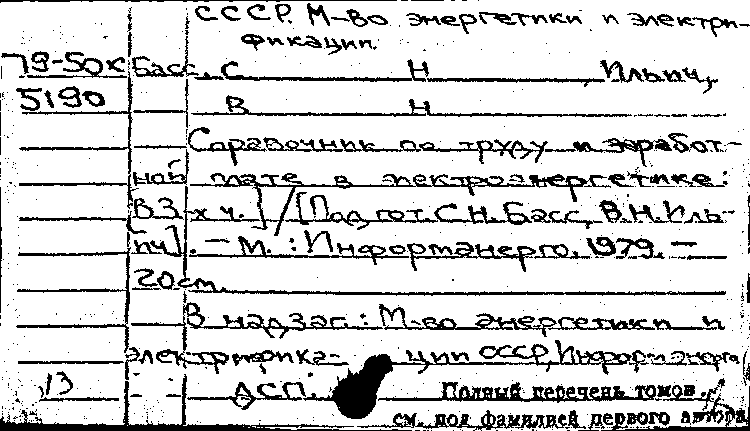 СССР. М-во энергетики и электри-
фикации.
79-50к Басс, С Н , Ильич,
5190 В Н
Справочник по труду и заработ-
ной плате в электроэнергетике:
[В 3-х ч.] / [Подгот. С.Н. Басс, В.Н. Иль-
ич]. - М. : Информэнерго, 1979. -
20см.
В надзаг.: М-во энергетики и
электрифика- ции СССР, Информэнерго
13 - - АСП.
Полный перечень томов
см. под фамилией первого автора